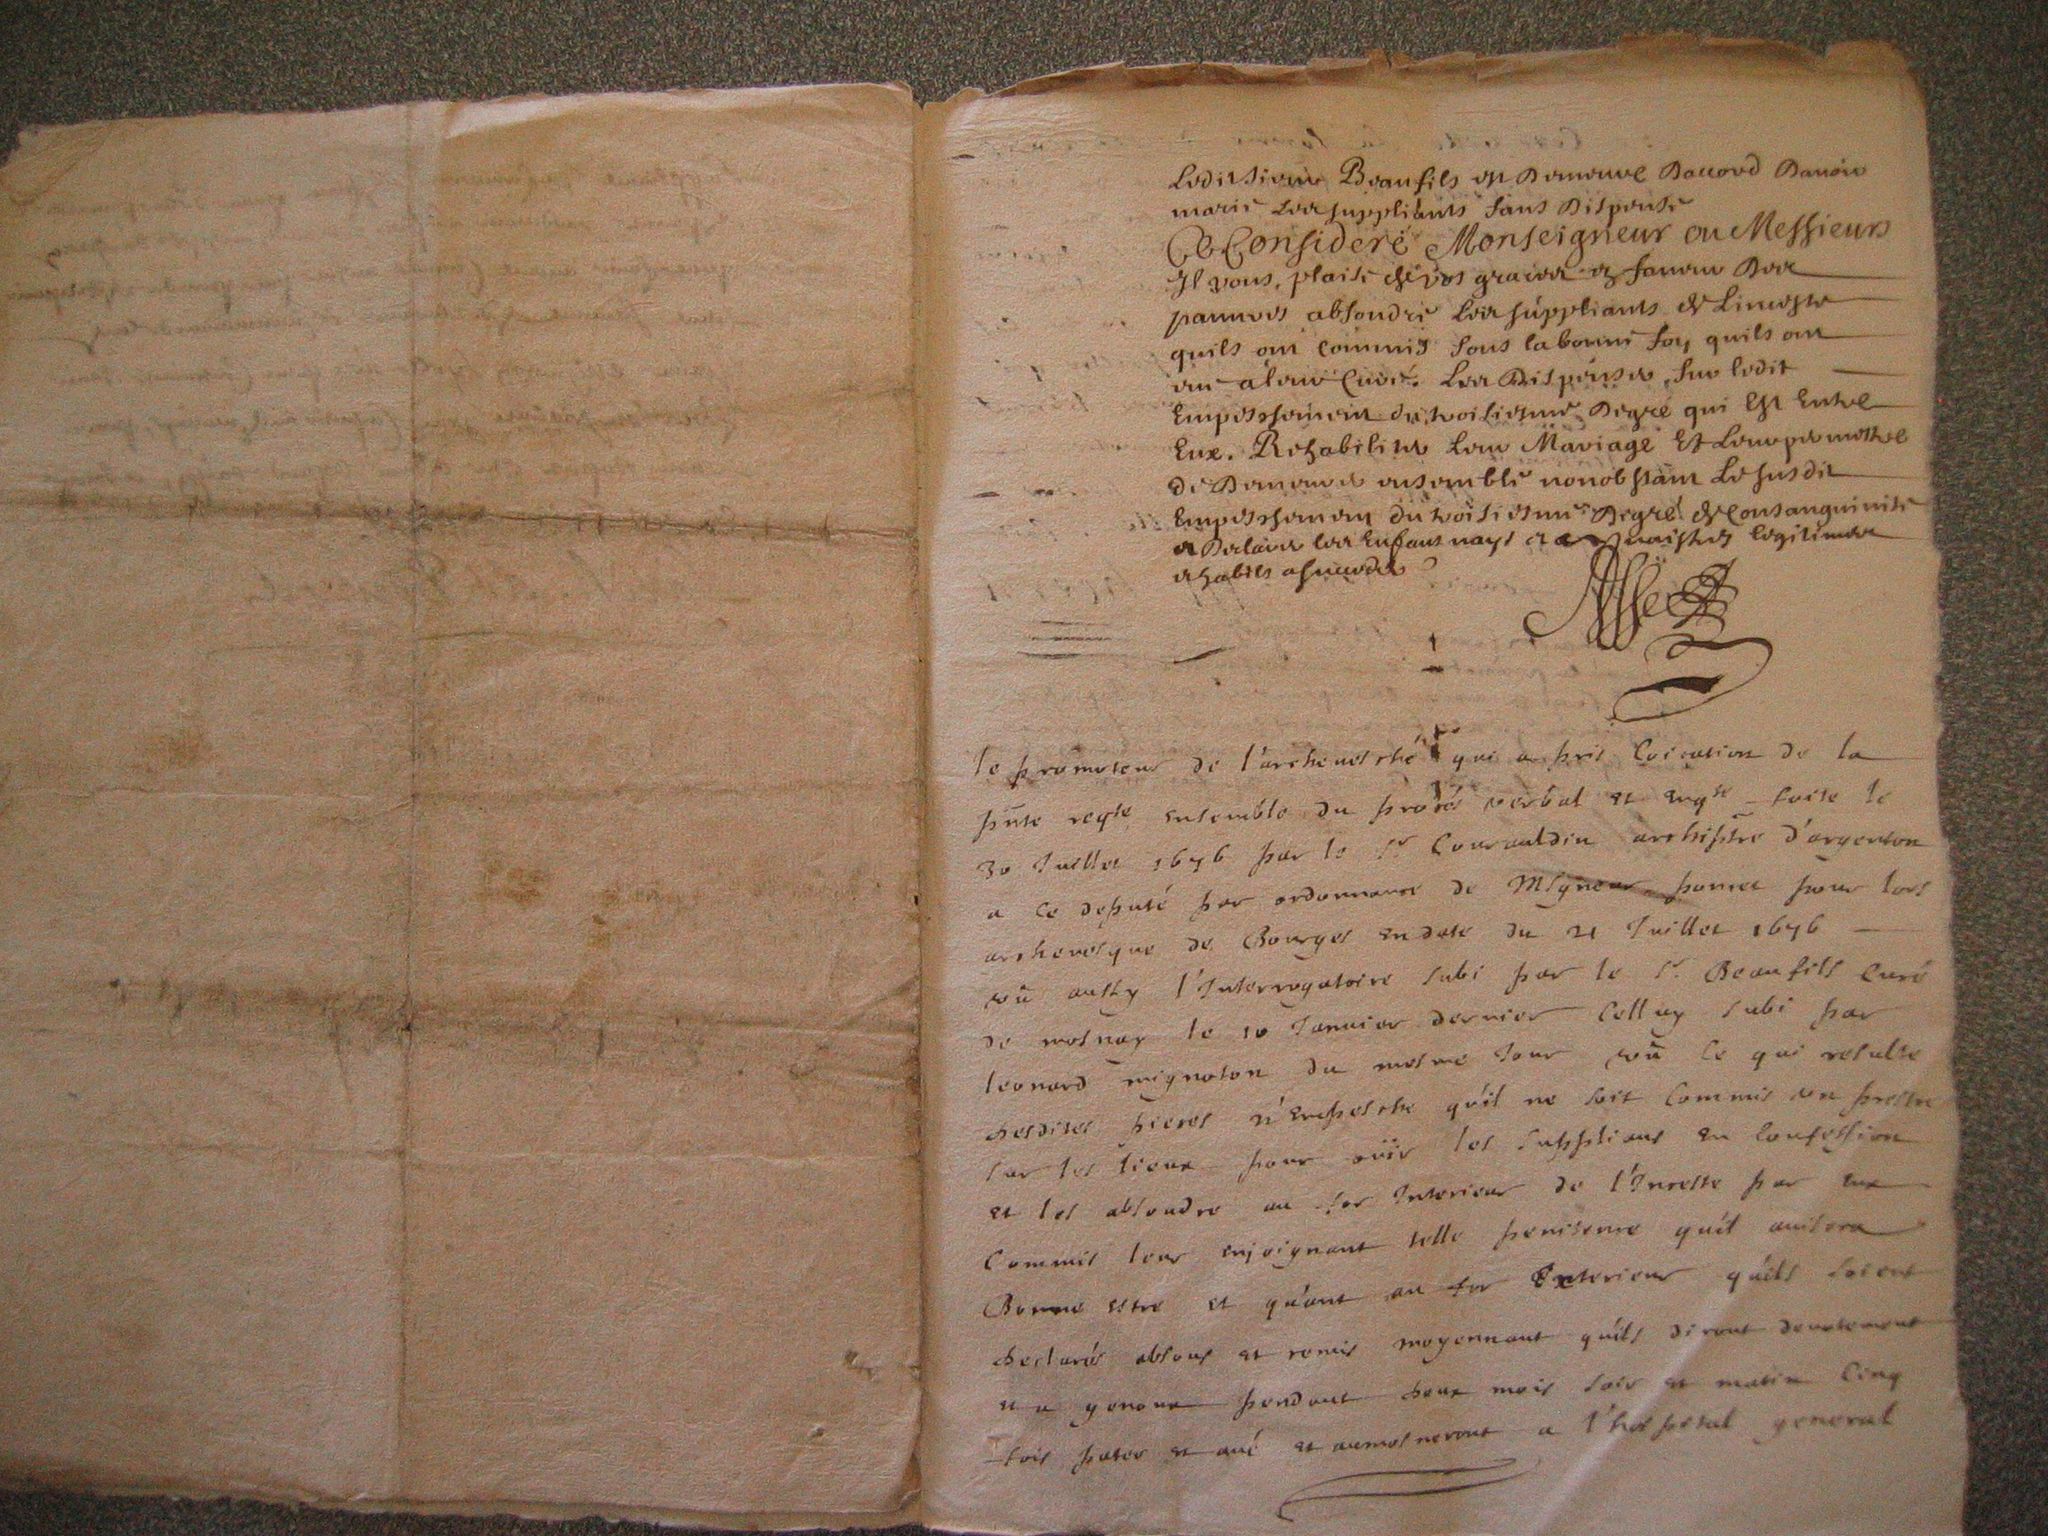 Ledit sieur Beaufils est demeuré d'accord d'avoir
marié les suppliants sans dispense
Ce Consideré Monseigneur ou Messieurs
Il vous plaise de vos graces et faveur des
pauvres absoudre les suppliants de Linceste
quils ont commis sous la bonne foy quils ont
eue a leur Curé. Les dispenser sur ledit
Empeschement du troisiesme degré qui est entre
Eux. Rehabiliter leur Mariage Et leur permettre
de demeurer ensemble nonobstant Le susdit
Empeschement du troisiesme degré de consanguinité
et declarer les Enfans nays et a naistre legitimes
et habils a succeder
le promoteur de l'archevesché qui a pris Coication de la
pnte reqte ensemble du procés verbal et enqte faite le
30 Juillet 1676 par le Sr Courauldin archiptre d'argenton
a ce deputé par ordonnance de Msgneur poncet pour lors
archevesque de Bourges en date du 21 Juillet 1676
vû aussy l'Interrogatoire subi par le Sr Beaufils Curé
de mosnay le 10 Janvier dernier Celluy subi par
leonard mignoton du mesme Jour vû Ce qui resulte
desdites pieces n'Empesche qu'il ne soit Commis un prestre
sur les lieux pour oüir les supplians en Confession
et les absoudre au for Interieur de l'Inceste par eux
Commis leur enjoignant telle penitence qu'il avisera
Bonne estre et qu'ant au for Exterieur qu'ils soient
declarés absous et remis moyennant qu'ils diront devotement
et a genoux pendant deux mois soir et matin Cinq
fois pater et avé et aumosneront a l'hospital general